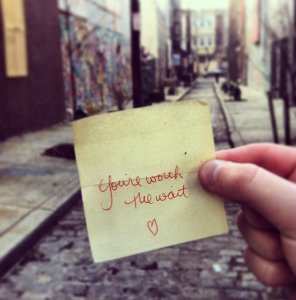 You're worth
the wait